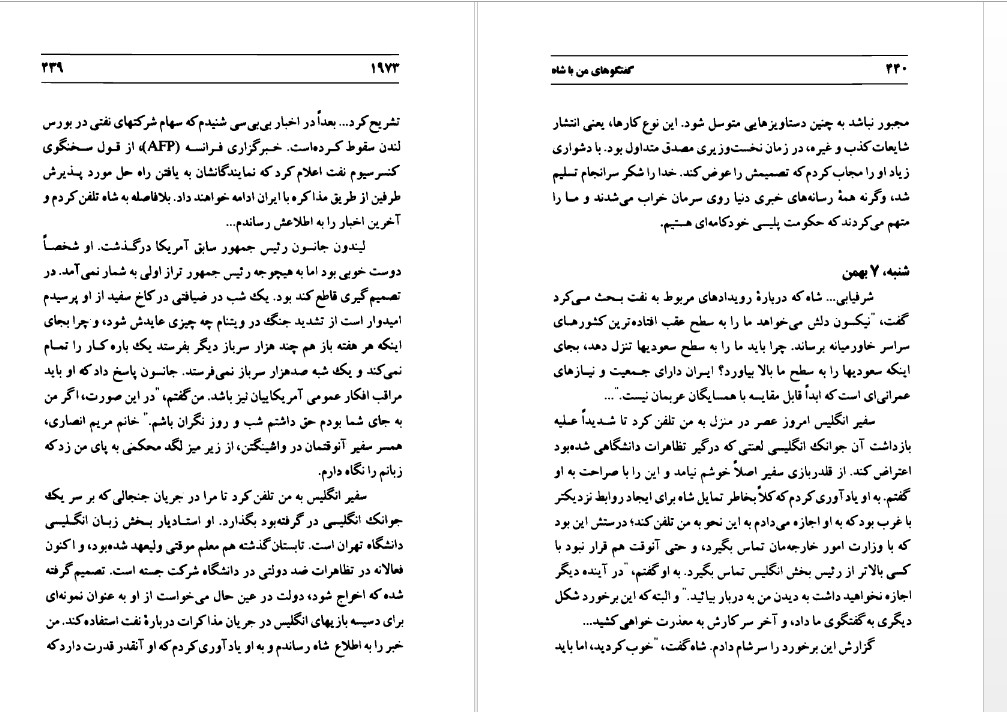 ۱۹۷۳ ۴۳۹
تشریح کرد... بعداً در اخبار بی‌بی‌سی شنیدم که سهام شرکتهای نفتی در بورس
لندن سقوط کرده‌است. خبرگزاری فرانسه (AFP)، از قول سخنگوی
کنسرسیوم نفت اعلام کرد که نمایندگانشان به یافتن راه حل مورد پذیرش
طرفین از طریق مذاکره با ایران ادامه خواهند داد. بلافاصله به شاه تلفن کردم و
آخرین اخبار را به اطلاعش رساندم...
لیندون جانسون رئیس جمهور سابق آمریکا درگذشت. او شخصاً
دوست خوبی بود اما به هیچوجه رئیس جمهور تراز اولی به شمار نمی‌آمد. در
تصمیم گیری قاطع کند بود. یک شب در ضیافتی در کاخ سفید از او پرسیدم
امیدوار است از تشدید جنگ در ویتنام چه چیزی عایدش شود، و چرا بجای
اینکه هر هفته باز هم چند هزار سرباز دیگر بفرستد یک باره کار را تمام
نمی‌کند و یک شبه صدهزار سرباز نمی‌فرستد. جانسون پاسخ داد که او باید
مراقب افکار عمومی آمریکاییان نیز باشد. من گفتم، "در این صورت، اگر من
به جای شما بودم حق داشتم شب و روز نگران باشم." خانم مریم انصاری،
همسر سفیر آنوقتمان در واشینگتن، از زیر میز لگد محکمی به پای من زد که
زبانم را نگاه دارم.
سفیر انگلیس به من تلفن کرد تا مرا در جریان جنجالی که بر سر یک
جوانک انگلیسی در گرفته‌بود بگذارد. او استادیار بخش زبان انگلیسی
دانشگاه تهران است. تابستان گذشته هم معلم موقتی ولیعهد شده‌بود، و اکنون
فعالانه در تظاهرات ضد دولتی در دانشگاه شرکت جسته است. تصمیم گرفته
شده که اخراج شود، دولت در عین حال می‌خواست از او به عنوان نمونه‌ای
برای دسیسه بازیهای انگلیس در جریان مذاکرات دربارهٔ نفت استفاده کند. من
خبر را به اطلاع شاه رساندم و به او یادآوری کردم که او آنقدر قدرت دارد که
۴۴۰ گفتگوهای من با شاه
مجبور نباشد به چنین دستاویزهایی متوسل شود. این نوع کارها، یعنی انتشار
شایعات کذب و غیره، در زمان نخست‌وزیری مصدق متداول بود. با دشواری
زیاد او را مجاب کردم که تصمیمش را عوض کند. خدا را شکر سرانجام تسلیم
شد، وگرنه همهٔ رسانه‌های خبری دنیا روی سرمان خراب می‌شدند و ما را
متهم می‌کردند که حکومت پلیسی خودکامه‌ای هستیم.
شنبه، ۷ بهمن
شرفیابی... شاه که دربارهٔ رویدادهای مربوط به نفت بحث می‌کرد
گفت، "نیکسون دلش می‌خواهد ما را به سطح عقب افتاده‌ترین کشورهای
سراسر خاورمیانه برساند. چرا باید ما را به سطح سعودیها تنزل دهد، بجای
اینکه سعودیها را به سطح ما بالا بیاورد؟ ایران دارای جمعیت و نیازهای
عمرانی‌ای است که ابداً قابل مقایسه با همسایگان عربمان نیست."...
سفیر انگلیس امروز عصر در منزل به من تلفن کرد تا شدیداً علیه
بازداشت آن جوانک انگلیسی لعنتی که درگیر تظاهرات دانشگاهی شده‌بود
اعتراض کند. از قلدربازی سفیر اصلاً خوشم نیامد و این را با صراحت به او
گفتم. به او یادآوری کردم که کلاً بخاطر تمایل شاه برای ایجاد روابط نزدیکتر
با غرب بود که به او اجازه می‌دادم به این نحو به من تلفن کند؛ درستش این بود
که با وزارت امور خارجه‌مان تماس بگیرد، و حتی آنوقت هم قرار نبود با
کسی بالاتر از رئیس بخش انگلیس تماس بگیرد. به او گفتم، "در آینده دیگر
اجازه نخواهید داشت به دیدن من به دربار بیائید." و البته که این برخورد شکل
دیگری به گفتگوی ما داد، و آخر سر کارش به معذرت خواهی کشید...
گزارش این برخورد را سر شام دادم. شاه گفت، "خوب کردید، اما باید